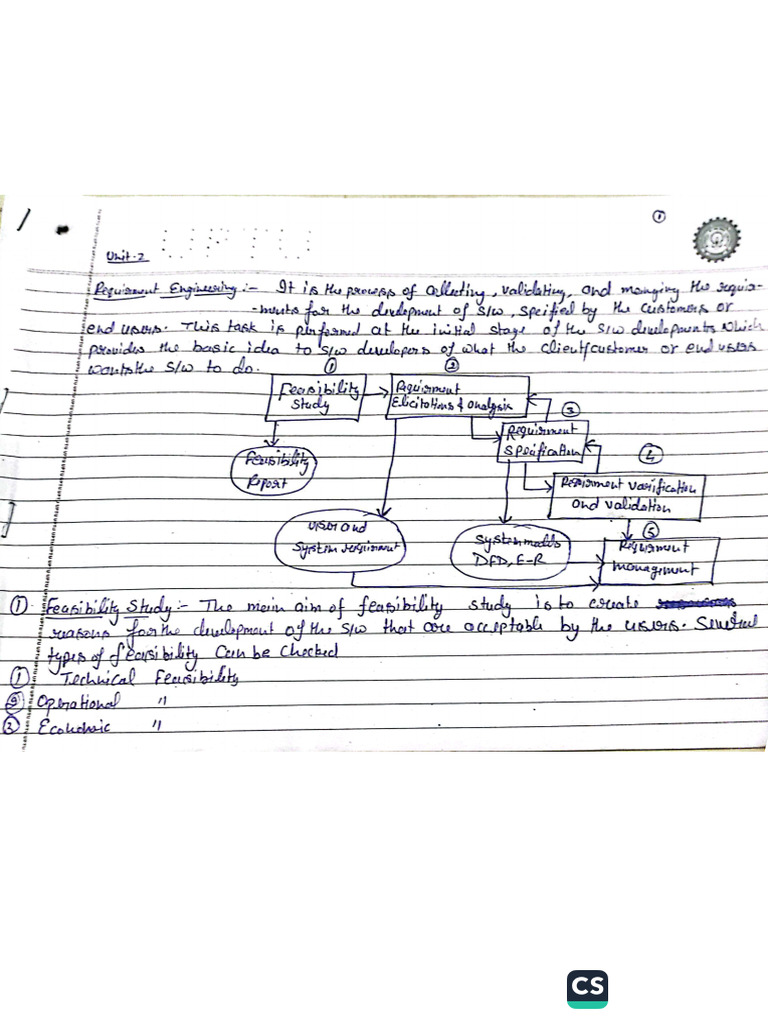 ①
Unit-2 UPTU
Requirment Engineering:- It is the process of collecting, validating, and manging the requir-
-ments for the development of S/w, specified by the customers or
end users. This task is performed at the initial stage of the S/w developments which
provides the basic idea to S/w developers of what the client/customer or end users
wants the S/w to do.
① ②
Feasibility
Study
Requirment
Elicitations & analysis
③
Requirment
Specification
④
Feasibility
Report
Requirment varification
and validation
user and
System requirment
System models
DFD, E-R
⑤
Requirment
management
① Feasibility Study:- The main aim of feasibility study is to create
reasons for the development of the S/w that are acceptable by the users. Several
types of feasibility Can be checked
① Technical Feasibility
② Operational "
③ Economic "
CS